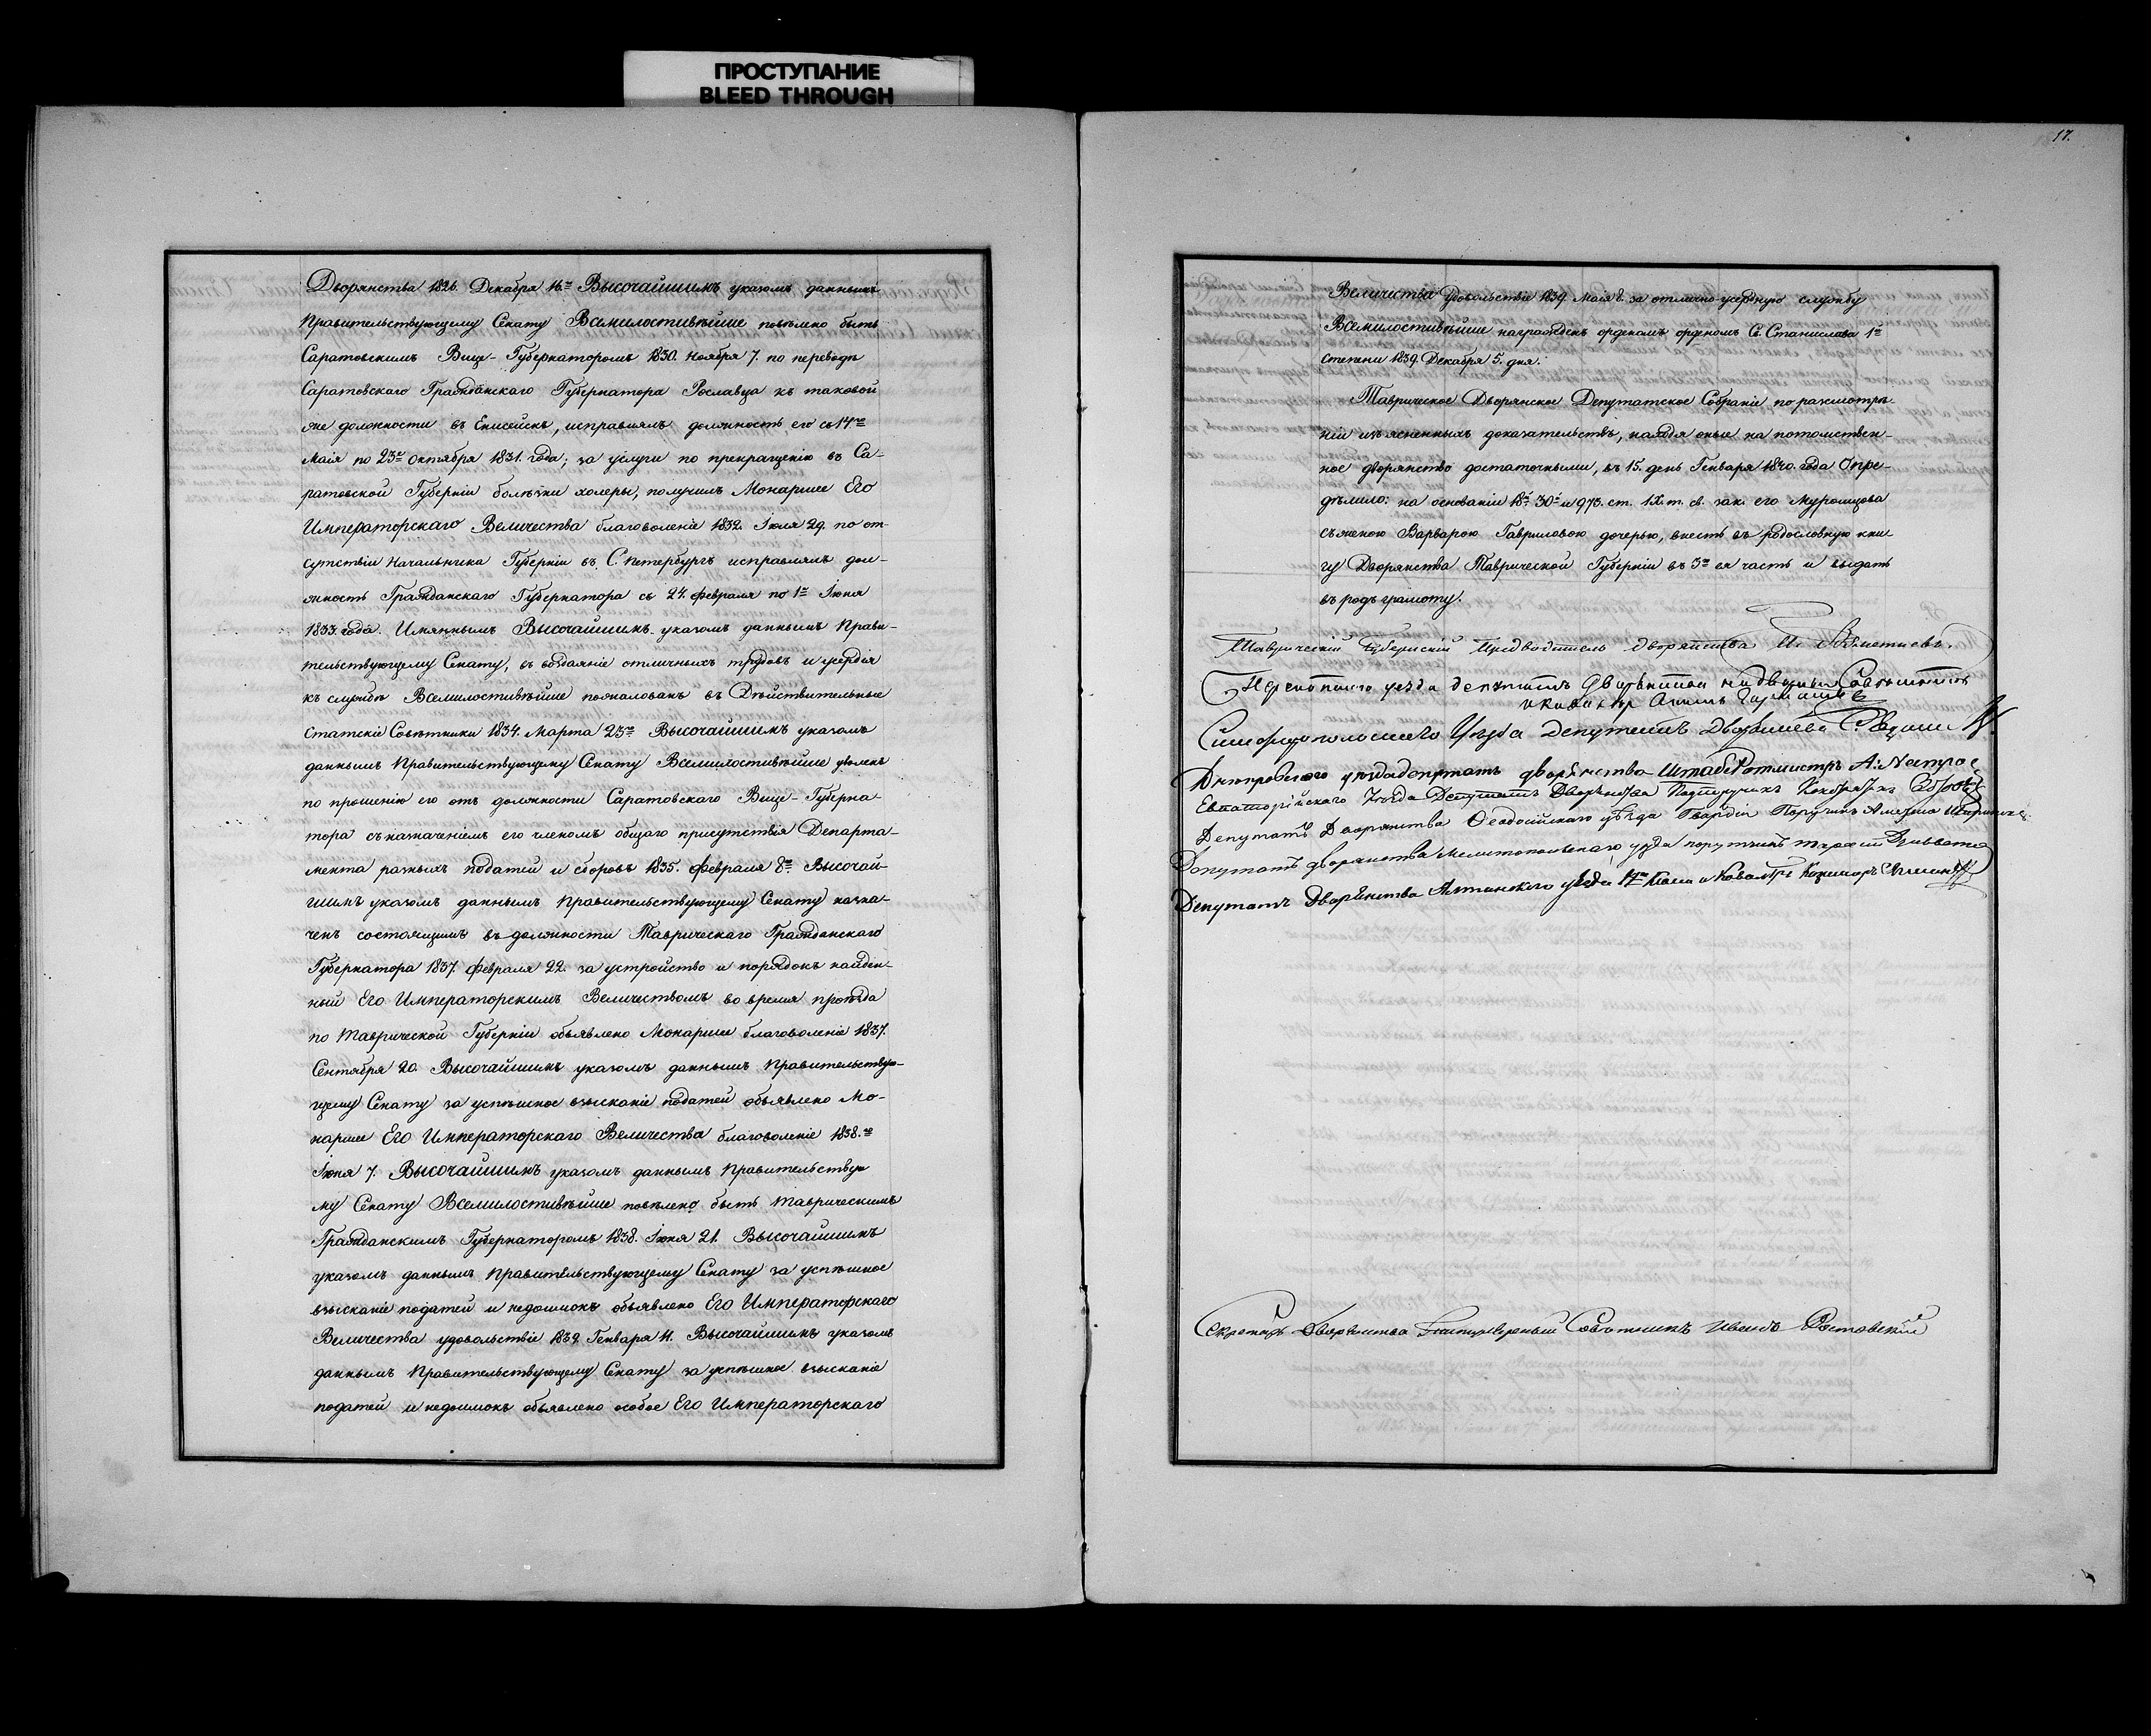 ПРОСТУПАНИЕ
BLEED THROUGH
Дворянства 1836. Декабря 16го Высочайшимъ указомъ даннымъ
Правительствующему Сенату Всемилостивѣйше повелено быть
Саратовскимъ Вице-Губернаторомъ 1830. Ноября 7. по переводѣ
Саратовскаго Гражданскаго Губернатора Рославца къ таковой
же должности въ Енисейскъ, исправлялъ должность его съ 14го
Маія по 23е Октября 1831. года; за услуги по прекращенію въ Са-
ратовской Губерніи болѣзни холеры, получилъ Монаршее Его
Императорскаго Величества благоволеніе 1832. Іюля 29. по от-
сутствіи Начальника Губерніи въ С. Петербургъ исправлялъ дол-
жность Гражданскаго Губернатора съ 24. Февраля по 1е Іюня
1833. года. Имяннымъ Высочайшимъ указомъ даннымъ Прави-
тельствующему Сенату, въ воздаяніе отличныхъ трудовъ и усердія
къ службѣ Всемилостивѣйше пожалованъ въ Дѣйствительные
Статскіе Совѣтники 1834. Марта 23го Высочайшимъ указомъ
даннымъ Правительствующему Сенату Всемилостивѣйше уволенъ
по прошенію его отъ должности Саратовскаго Вице-Губерна-
тора съ назначеніемъ его членомъ общаго присутствія Департа-
мента разныхъ податей и сборовъ 1835. Февраля 8го Высочай-
шимъ указомъ даннымъ Правительствующему Сенату назна-
ченъ состоящимъ въ должности Таврическаго Гражданскаго
Губернатора 1837. Февраля 22. за устройство и порядокъ найден-
ный Его Императорскимъ Величествомъ во время проѣзда
по Таврической Губерніи объявлено Монаршее благоволеніе 1837.
Сентября 20. Высочайшимъ указомъ даннымъ Правительствую-
щему Сенату за успѣшное взысканіе податей объявлено Мо-
наршее Его Императорскаго Величества благоволеніе 1838.го
Іюня 7. Высочайшимъ указомъ даннымъ Правительствую
му Сенату Всемилостивѣйше повелено быть Таврическимъ
Гражданскимъ Губернаторомъ 1838. Іюня 21. Высочайшимъ
указомъ даннымъ Правительствующему Сенату за успѣшное
взысканіе податей и недоимокъ объявлено Его Императорскаго
Величества удовольствіе 1839. Генваря 11. Высочайшимъ указомъ
даннымъ Правительствующему Сенату за успѣшное взысканіе
податей и недоимокъ объявлено особое Его Императорскаго
17.
Величества удовольствіе 1839. Маія 8. за отлично-усердную службу
Всемилостивѣйше награжденъ орденомъ орденомъ Св. Станислава 1й
степени 1839. Декабря 5. дня.
Таврическое Дворянское Депутатское Собраніе, по разсмотрѣ-
ніи изъясненныхъ доказательствъ, находя оные на потомствен-
ное дворянство достаточными, въ 15. день Генваря 1840. года Опре-
дѣлило: на основаніи 18й 30й и 973. ст. IX. т. св. зак. его Муромцова
съ женою Варварою Гавриловою дочерью, внесть въ родословную кни
гу Дворянства Таврической Губерніи въ 3ю ея часть и выдать
въ родъ грамоту.
Таврическій Губернскій Предводитель дворянства
Перекопскаго уезда депутатъ Дворянства надворный Совѣтникъ
и Кавалеръ
Симферопольскаго Уезда Депутатъ Дворянства
Днепровского уезда депутатъ дворянства Штабс Ротмистръ А.
Евпаторійскаго Уезда Депутатъ Дворянства Подпоручикъ
Депутатъ Дворянства Ѳеодосійскаго уѣзда Гвардіи Поручикъ
Депутатъ дворянства Мелитопольскаго уезда порутчикъ
Депутатъ Дворянства Ялтинского уезда 14го Класа и Кавалеръ
Секретарь Дворянства Титулярный Совѣтникъ Иванъ Ростовскій